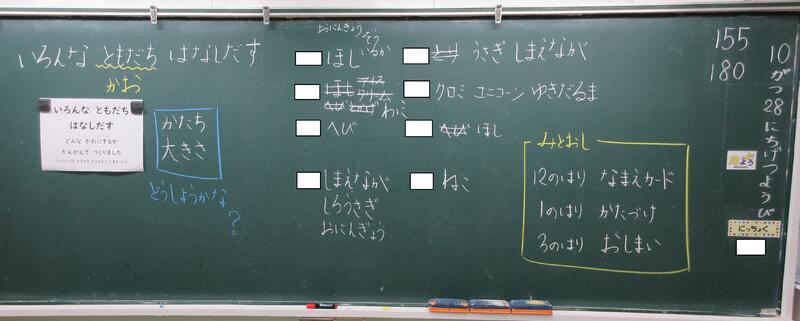 いろんな ともだち はなしだす
かお
いろんな ともだち
はなしだす
どんな かおにするか
かんがえて つくりました
かたち
大きさ
どうしようかな
?
おにんぎょう ぞう
ほし いるか
ほし アイス
クリーム
へび ねこ
へび
しまえなが
しろうさぎ
おにんぎょう
とり うさぎ しまえなが
クロミ ユニコーン ゆきだるま
へび ほし
ねこ
みとおし
12のはり なまえカード
1のはり かたづけ
3のはり おしまい
155
180
10がつ28にちげつようび
月よう
にっちょく